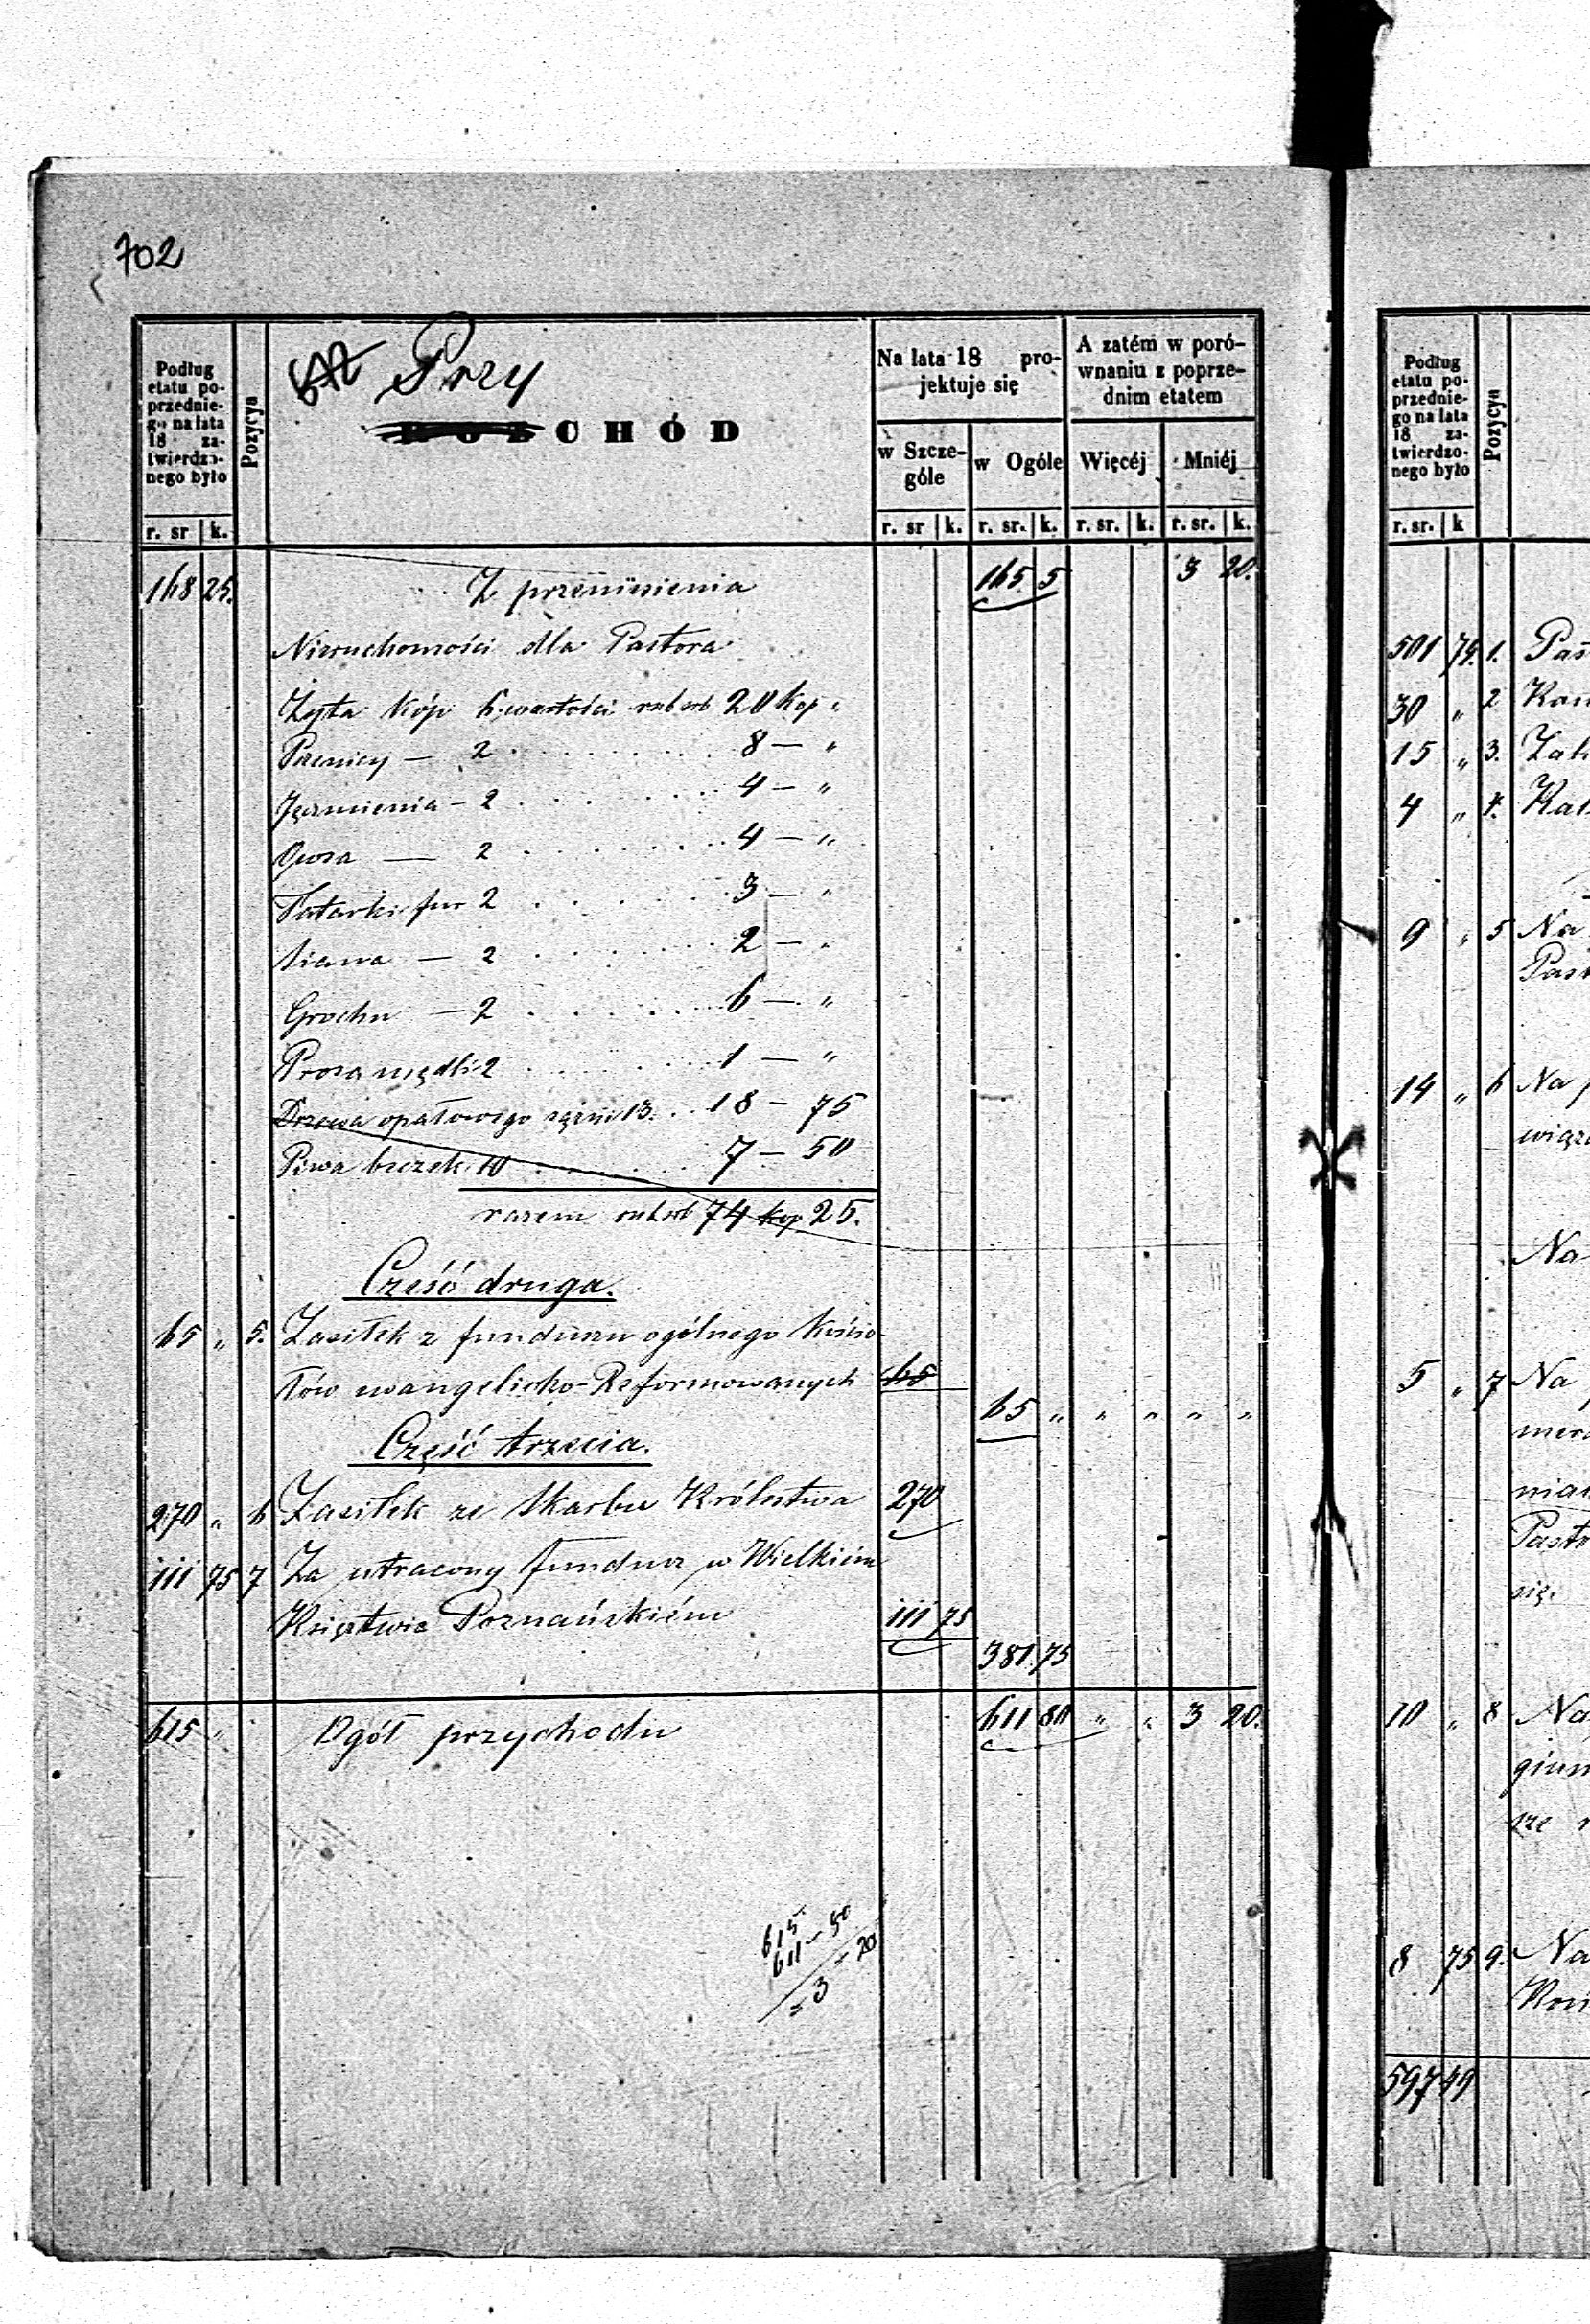 702
Podług etatu poprzedniego na lata 18 zatwierdzonego było
Pozycya
Przy
ROZCHÓD
Na lata 18 projektuje się
A zatém w porównaniu z poprzednim etatem
w Szczególe
w Ogóle
Więcéj
Mniéj
r. sr k.
r. sr k. r. sr. k. r. sr. k. r. sr. k.
168 25. Z przeniesienia 165 5 3 20.
Nieruchomości dla Pastora
Żyta kóp 6 wartości rub srb 20 kop „
Pszenicy — 2 . . . 8 — „
Jęczmienia — 2 . . . 4 — „
Owsa — 2 . . . 4 — „
Tatarki fur 2 . . . 3 — „
Siana — 2 . . . 2 — „
Grochu — 2 . . . 6 — „
Prosa mędli 2 . . . 1 — „
Drzewa opałowego sążni 13 . . 18 — 75
Piwa beczek 10 . . . 7 — 50
razem rub srb 74 kop 25.
Część druga.
65 „ 5. Zasiłek z funduszu ogólnego kościo-
łów ewangelicko-Reformowanych 65
65 „ „ „ „ „
Część trzecia.
270 „ 6 Zasiłek ze Skarbu Królestwa 270
111 75 7 Za utracony fundusz w Wielkiém
Księztwie Poznańskiém 111 75
381 75
615 „ Ogół przychodu 611 80 „ „ 3 20.
615
611 — 80
3 — 20
Podług etatu poprzedniego na lata 18 zatwierdzonego było
Pozycya
r. sr. k
501 74. 1. Pas
30 „ 2
15 „ 3.
4 „ 4.
9 „ 5 Na
Past
14 „ 6 Na
wiąz
Na
5 „ 7 Na
Past
się.
10 „ 8 Na
8 75 9. Na
597 49